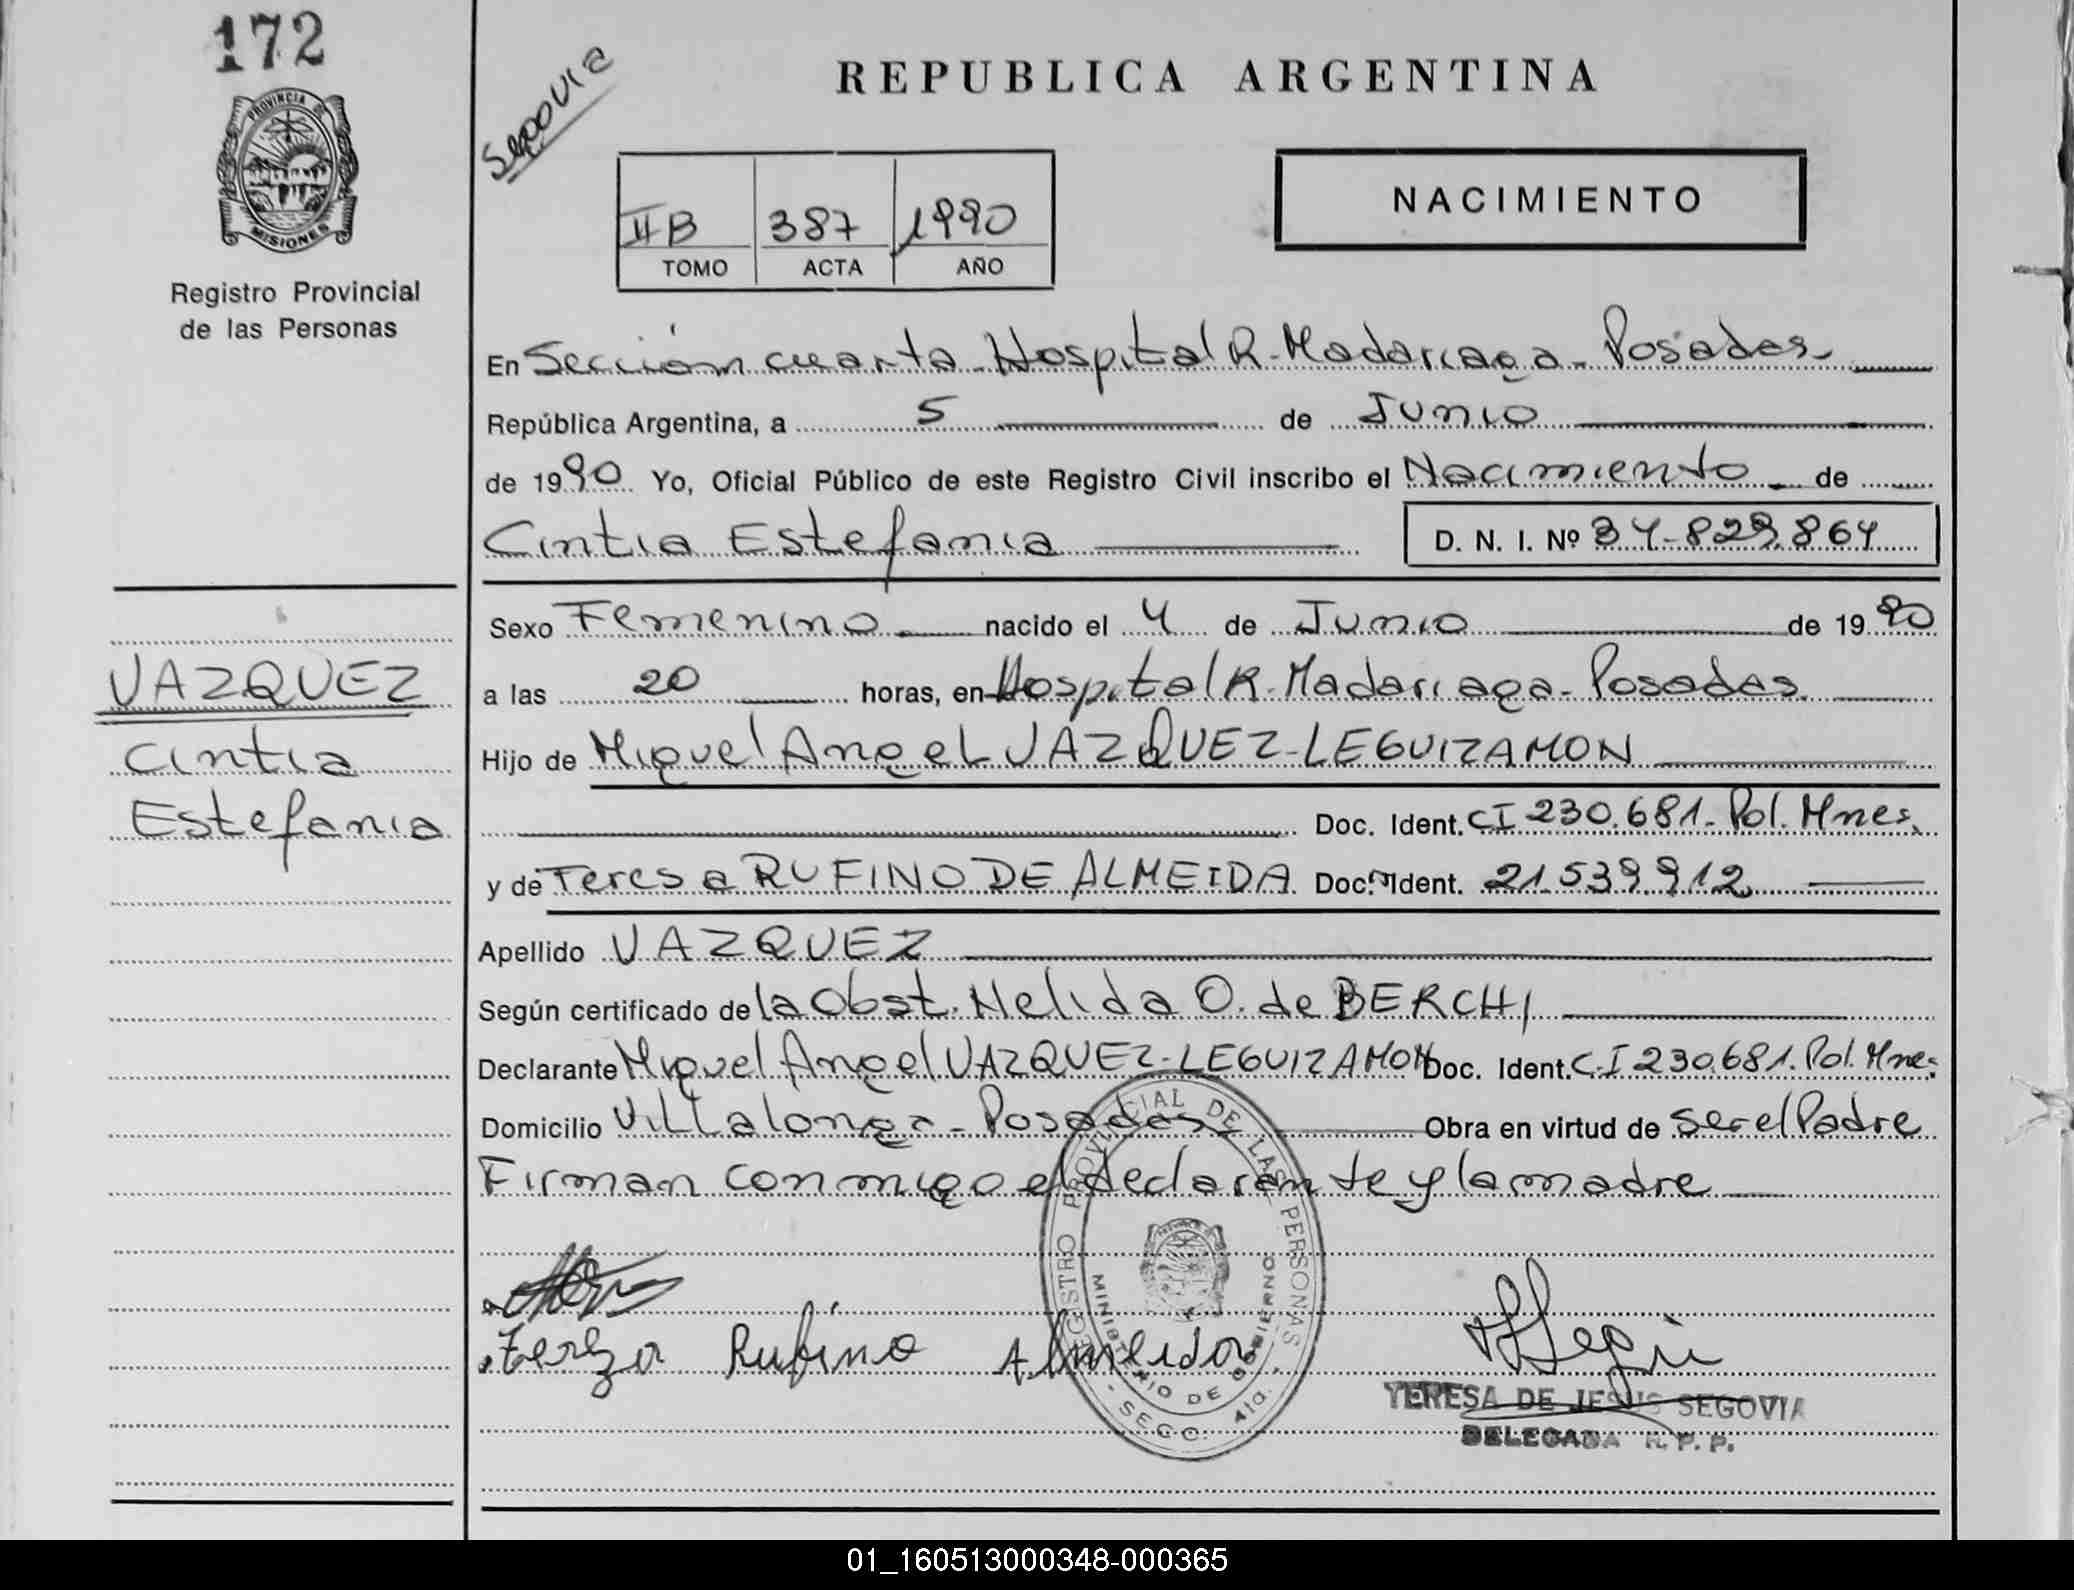 172
Segovia
REPUBLICA ARGENTINA
PROVINCIA DE MISIONES
Registro Provincial
de las Personas
II B 387 1990
TOMO ACTA AÑO
NACIMIENTO
En Sección cuarta Hospital R. Madariaga - Posadas
República Argentina, a 5 de Junio
de 1990 Yo, Oficial Público de este Registro Civil inscribo el Nacimiento de
Cintia Estefania D. N. I. Nº 34.829.864
Sexo Femenino nacido el 4 de Junio de 1990
a las 20 horas, en Hospital R. Madariaga - Posadas
Hijo de Miguel Angel VAZQUEZ - LEGUIZAMON
Doc. Ident. CI 230.681. Pol. Mnes.
y de Teresa RUFINO DE ALMEIDA Doc. Ident. 21.539.912
Apellido VAZQUEZ
Según certificado de la Obst. Nelida O. de BERCHI
Declarante Miguel Angel VAZQUEZ - LEGUIZAMON Doc. Ident. C.I 230.681. Pol. Mnes.
Domicilio Villalonga - Posadas Obra en virtud de ser el Padre
Firman conmigo el declarante y la madre
VAZQUEZ
Cintia
Estefania
Tereza Rufino Almeida
REGISTRO PROVINCIAL DE LAS PERSONAS
MINISTERIO DE GOBIERNO
- SECC. 4ta. -
TERESA DE JESUS SEGOVIA
DELEGADA R. P. P.
01_160513000348-000365